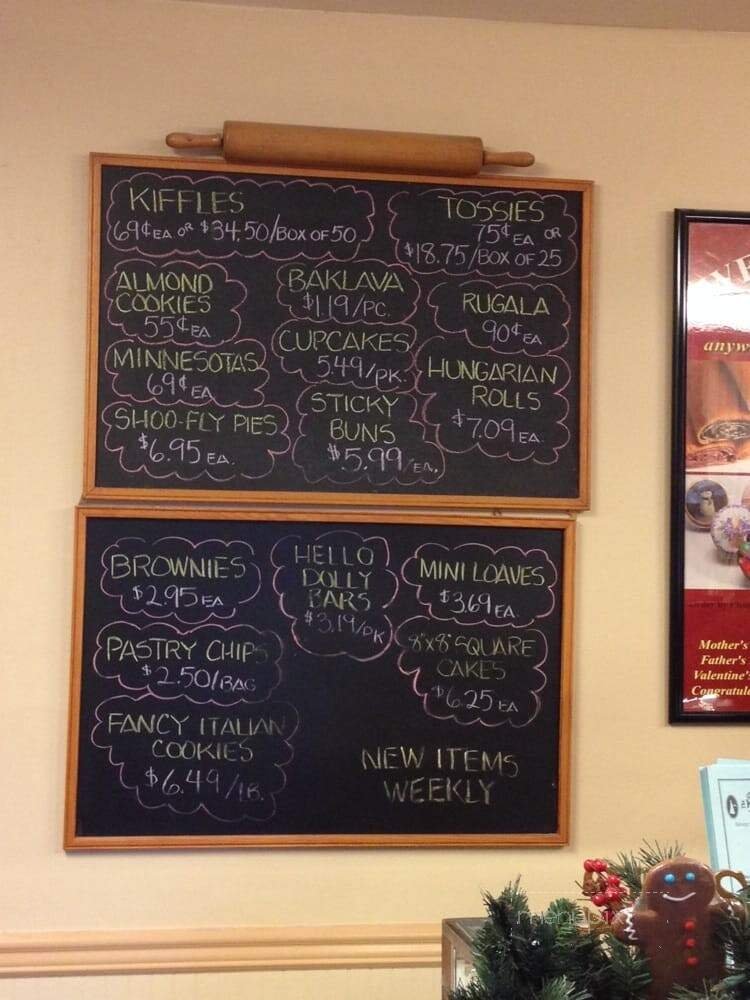 KIFFLES
69¢ EA OR $34.50/BOX OF 50
TOSSIES
75¢ EA OR
$18.75/BOX OF 25
ALMOND
COOKIES
55¢ EA
BAKLAVA
$1.19/PC.
RUGALA
90¢ EA
MINNESOTAS
69¢ EA
CUPCAKES
5.49/PK.
HUNGARIAN
ROLLS
$7.09 EA.
SHOO-FLY PIES
$6.95 EA.
STICKY
BUNS
$5.99/EA.
BROWNIES
$2.95 EA
HELLO
DOLLY
BARS
$3.19/PK
MINI LOAVES
$3.69 EA.
PASTRY CHIPS
$2.50/BAG
8"x8" SQUARE
CAKES
$6.25 EA
FANCY ITALIAN
COOKIES
$6.49/lB.
NEW ITEMS
WEEKLY
anyw
Mother's
Father's
Valentine's
Congratula
menupix